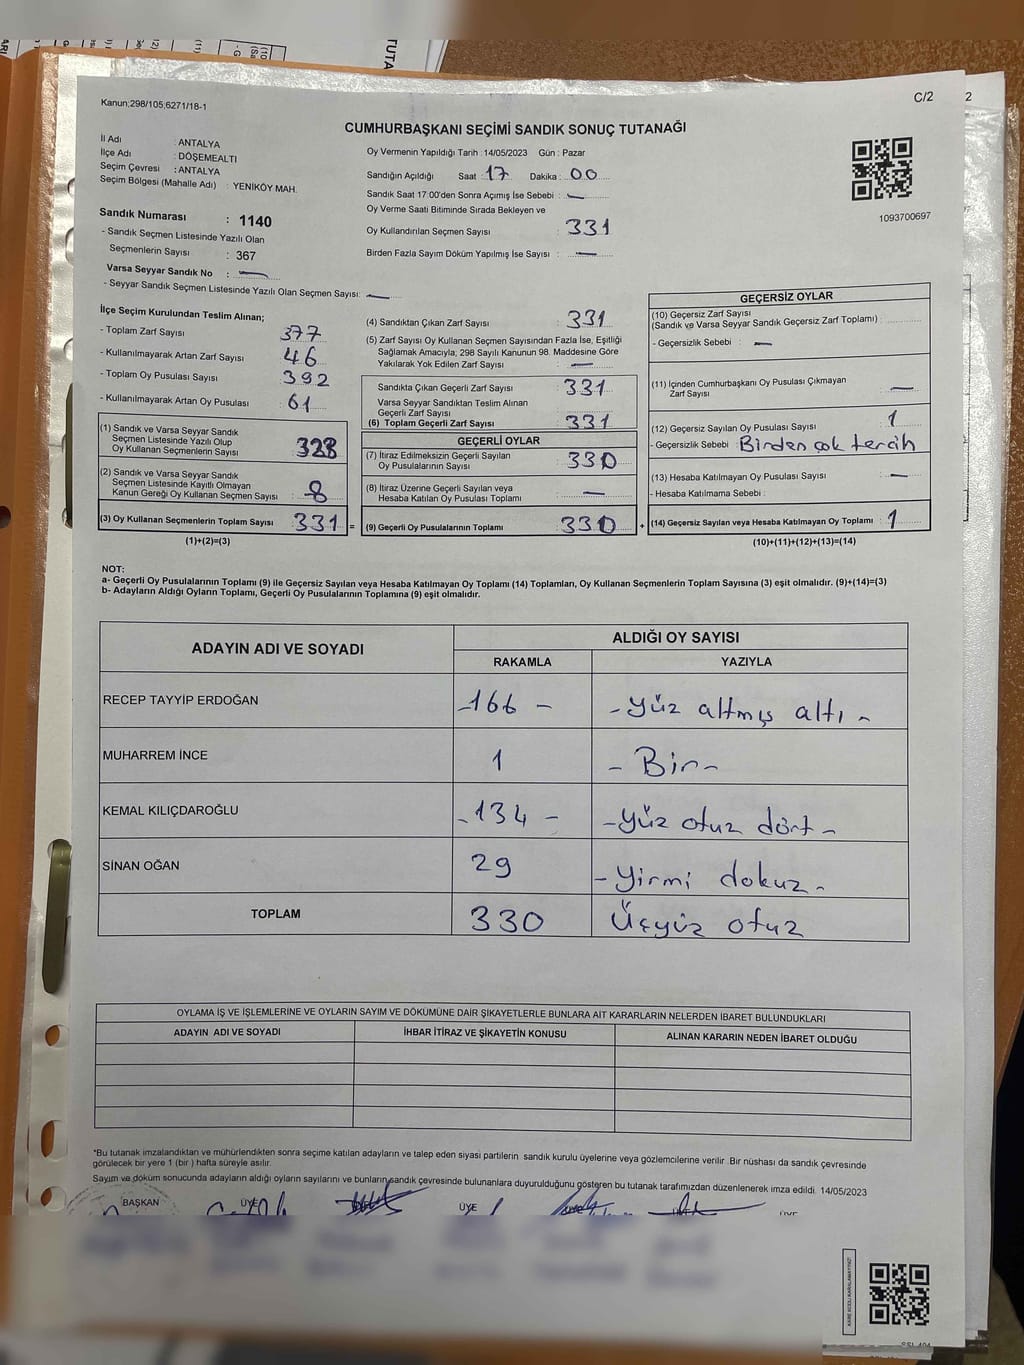 Kanun;298/105;6271/18-1
C/2
2
CUMHURBAŞKANI SEÇİMİ SANDIK SONUÇ TUTANAĞI
İl Adı : ANTALYA
İlçe Adı : DÖŞEMEALTI
Seçim Çevresi : ANTALYA
Seçim Bölgesi (Mahalle Adı) : YENİKÖY MAH.
Sandık Numarası : 1140
- Sandık Seçmen Listesinde Yazılı Olan
Seçmenlerin Sayısı : 367
Varsa Seyyar Sandık No : —
- Seyyar Sandık Seçmen Listesinde Yazılı Olan Seçmen Sayısı: —
Oy Vermenin Yapıldığı Tarih :14/05/2023 Gün : Pazar
Sandığın Açıldığı Saat : 17 Dakika : 00
Sandık Saat 17:00'den Sonra Açımış İse Sebebi : —
Oy Verme Saati Bitiminde Sırada Bekleyen ve
Oy Kullandırılan Seçmen Sayısı : 331
Birden Fazla Sayım Döküm Yapılmış İse Sayısı : —
1093700697
İlçe Seçim Kurulundan Teslim Alınan;
- Toplam Zarf Sayısı 377
- Kullanılmayarak Artan Zarf Sayısı : 46
- Toplam Oy Pusulası Sayısı : 392
- Kullanılmayarak Artan Oy Pusulası : 61
(1) Sandık ve Varsa Seyyar Sandık
Seçmen Listesinde Yazılı Olup
Oy Kullanan Seçmenlerin Sayısı : 328
(2) Sandık ve Varsa Seyyar Sandık
Seçmen Listesinde Kayıtlı Olmayan
Kanun Gereği Oy Kullanan Seçmen Sayısı : 8
(3) Oy Kullanan Seçmenlerin Toplam Sayısı : 331 =
(1)+(2)=(3)
(4) Sandıktan Çıkan Zarf Sayısı : 331
(5) Zarf Sayısı Oy Kullanan Seçmen Sayısından Fazla İse, Eşitliği
Sağlamak Amacıyla; 298 Sayılı Kanunun 98. Maddesine Göre
Yakılarak Yok Edilen Zarf Sayısı : —
Sandıkta Çıkan Geçerli Zarf Sayısı : 331
Varsa Seyyar Sandıktan Teslim Alınan
Geçerli Zarf Sayısı
(6) Toplam Geçerli Zarf Sayısı : 331
GEÇERLİ OYLAR
(7) İtiraz Edilmeksizin Geçerli Sayılan
Oy Pusulalarının Sayısı : 330
(8) İtiraz Üzerine Geçerli Sayılan veya
Hesaba Katılan Oy Pusulası Toplamı : —
(9) Geçerli Oy Pusulalarının Toplamı : 330 +
GEÇERSİZ OYLAR
(10) Geçersiz Zarf Sayısı
(Sandık ve Varsa Seyyar Sandık Geçersiz Zarf Toplamı) :
- Geçersizlik Sebebi : —
(11) İçinden Cumhurbaşkanı Oy Pusulası Çıkmayan
Zarf Sayısı : —
(12) Geçersiz Sayılan Oy Pusulası Sayısı : 1
- Geçersizlik Sebebi : Birden çok tercih
(13) Hesaba Katılmayan Oy Pusulası Sayısı : —
- Hesaba Katılmama Sebebi :
(14) Geçersiz Sayılan veya Hesaba Katılmayan Oy Toplamı : 1
(10)+(11)+(12)+(13)=(14)
NOT:
a- Geçerli Oy Pusulalarının Toplamı (9) ile Geçersiz Sayılan veya Hesaba Katılmayan Oy Toplamı (14) Toplamları, Oy Kullanan Seçmenlerin Toplam Sayısına (3) eşit olmalıdır. (9)+(14)=(3)
b- Adayların Aldığı Oyların Toplamı, Geçerli Oy Pusulalarının Toplamına (9) eşit olmalıdır.
ADAYIN ADI VE SOYADI ALDIĞI OY SAYISI
RAKAMLA YAZIYLA
RECEP TAYYİP ERDOĞAN -166 - - Yüz altmış altı -
MUHARREM İNCE 1 - Bir -
KEMAL KILIÇDAROĞLU -134 - - Yüz otuz dört -
SİNAN OĞAN 29 - Yirmi dokuz -
TOPLAM 330 Üçyüz otuz
OYLAMA İŞ VE İŞLEMLERİNE VE OYLARIN SAYIM VE DÖKÜMÜNE DAİR ŞİKAYETLERLE BUNLARA AİT KARARLARIN NELERDEN İBARET BULUNDUKLARI
ADAYIN ADI VE SOYADI İHBAR İTİRAZ VE ŞİKAYETİN KONUSU ALINAN KARARIN NEDEN İBARET OLDUĞU
*Bu tutanak imzalandıktan ve mühürlendikten sonra seçime katılan adayların ve talep eden siyasi partilerin sandık kurulu üyelerine veya gözlemcilerine verilir .Bir nüshası da sandık çevresinde
görülecek bir yere 1 (bir ) hafta süreyle asılır.
Sayım ve döküm sonucunda adayların aldığı oyların sayılarını ve bunların sandık çevresinde bulunanlara duyurulduğunu gösteren bu tutanak tarafımızdan düzenlenerek imza edildi. 14/05/2023
BAŞKAN ÜYE ÜYE ÜYE
KARE KODU KARALAMAYINIZ!